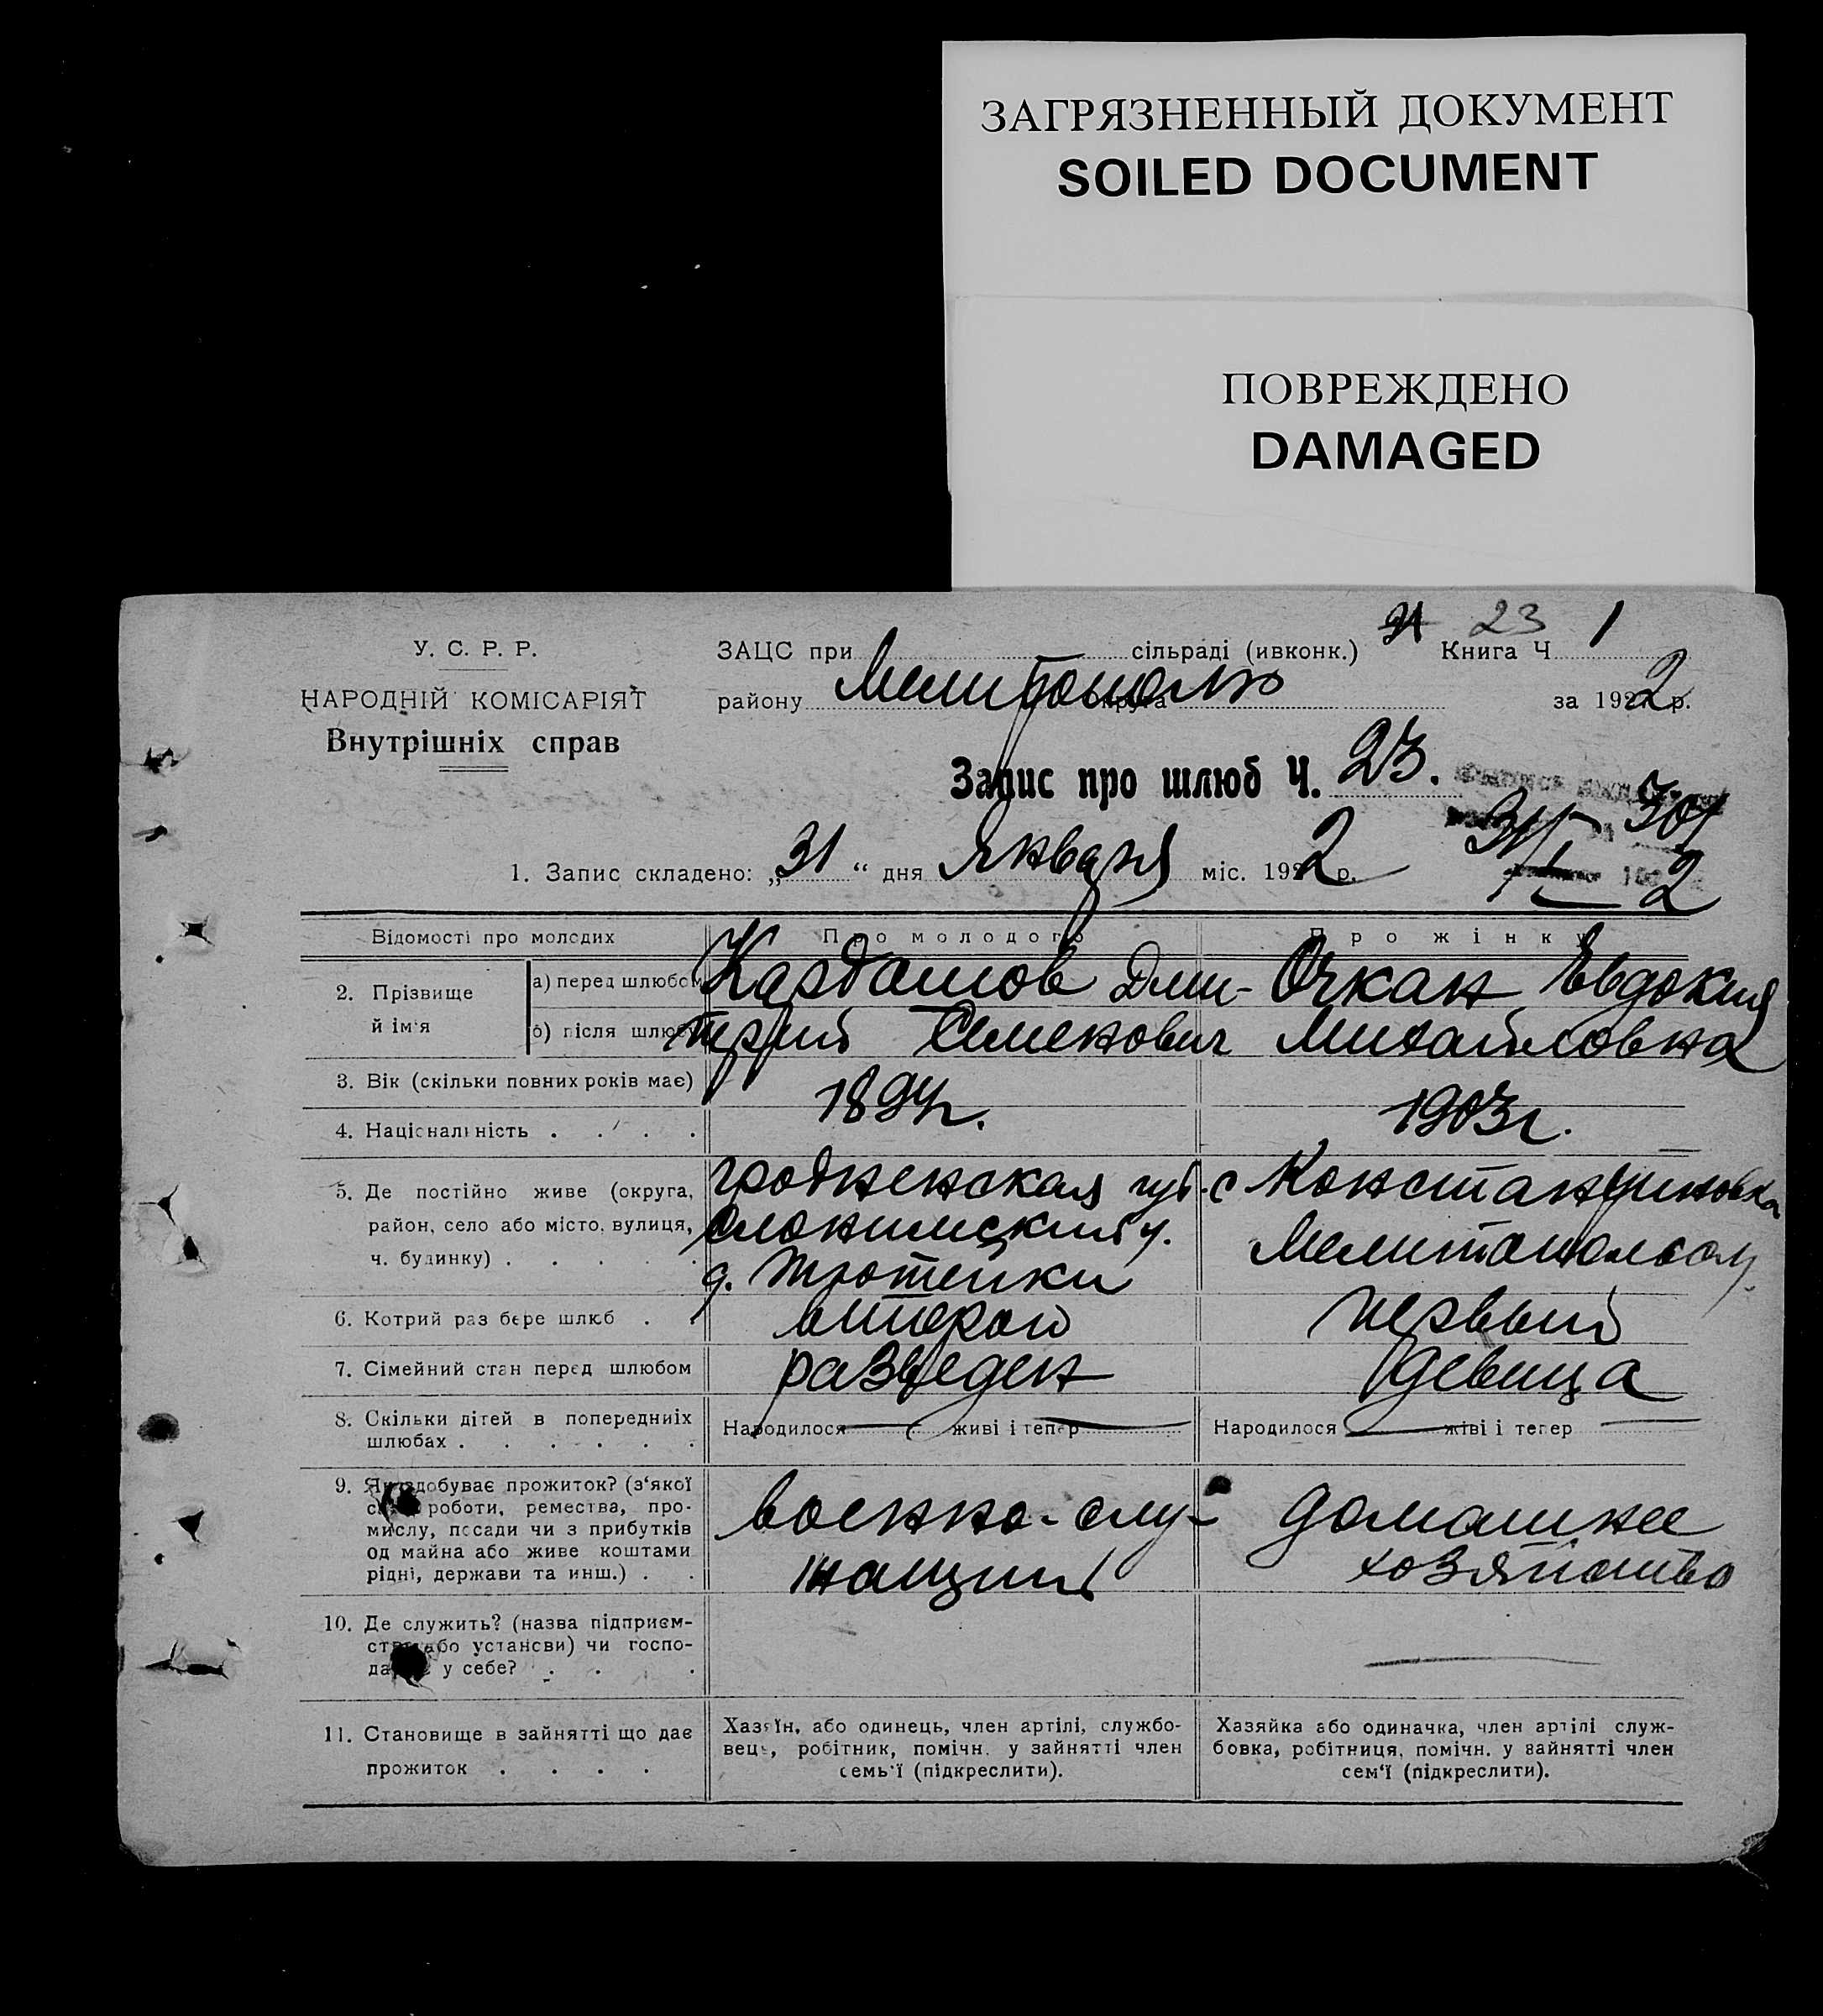 ЗАГРЯЗНЕННЫЙ ДОКУМЕНТ
SOILED DOCUMENT
ПОВРЕЖДЕНО
DAMAGED
У. С. Р. Р.
НАРОДНІЙ КОМІСАРІЯТ
Внутрішніх справ
ЗАЦС при сільраді (ивконк.) 23 Книга Ч 1
району Мелитополю округа за 1922 р.
Запис про шлюб Ч. 23.
1. Запис складено: „31“ дня Января міс. 1922 р.
Відомості про молодих Про молодого Про жінку
2. Прізвище й ім'я
а) перед шлюбом Кардашов Дми- Очкан Евдокия
б) після шлюбу трий Семенович Михайловна
3. Вік (скільки повних років має) 1894г. 1903г.
4. Національність . . . .
5. Де постійно живе (округа, гродненская губ. с Константиновка
район, село або місто, вулиця, слонимский у. Мелитопольск у.
ч. будинку) . . . . . д.
6. Котрий раз бере шлюб . . второй первый
7. Сімейний стан перед шлюбом разведен девица
8. Скільки дітей в попередниіх Народилося живі і тепер Народилося живі і тепер
шлюбах . . . . . .
9. Як здобуває прожиток? (з'якої военно-слу- домашнее
роботи, ремества, про-
мислу, посади чи з прибутків жащий хозяйство
од майна або живе коштами
рідні, держави та инш.) . .
10. Де служить? (назва підприєм-
ства або установи) чи госпо-
дарює у себе? . . .
11. Становище в зайнятті що дає
прожиток . . . .
Хазяїн, або одинець, член артілі, службо-
вець, робітник, помічн. у зайнятті член
семь'ї (підкреслити).
Хазяйка або одиначка, член артілі служ-
бовка, робітниця, помічн. у зайнятті член
сем'ї (підкреслити).